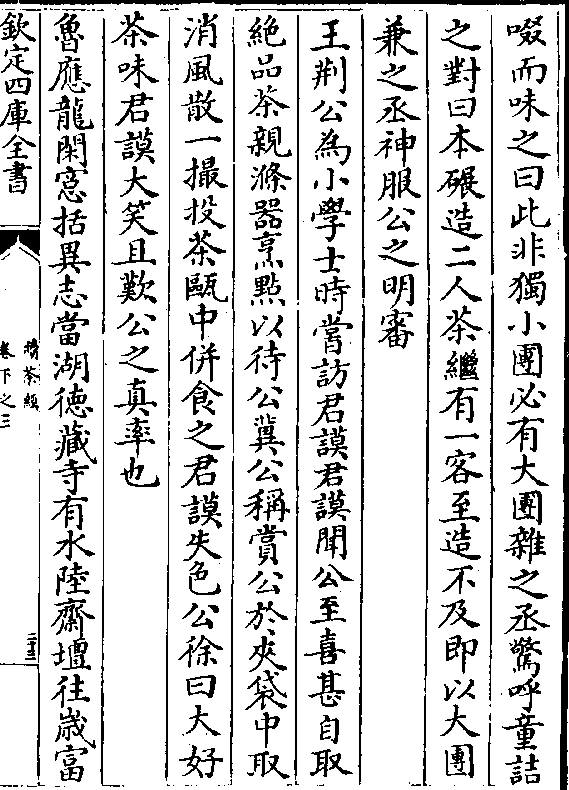 啜而味之曰此非獨小團必有大團雜之丞驚呼童詰
之對曰本碾造二人茶繼有一客至造不及即以大團
兼之丞神服公之明審
王荆公為小學士時嘗訪君謨君謨聞公至喜甚自取
絶品茶親滌器烹點以待公冀公稱賞公於夾袋中取
消風散一撮投茶甌中併食之君謨失色公徐曰大好
茶味君謨大笑且歎公之真率也
魯應龍閑窓括異志當湖徳藏寺有水陸齋壇往嵗富
欽定四庫全書
續茶經
卷下之三
二十三